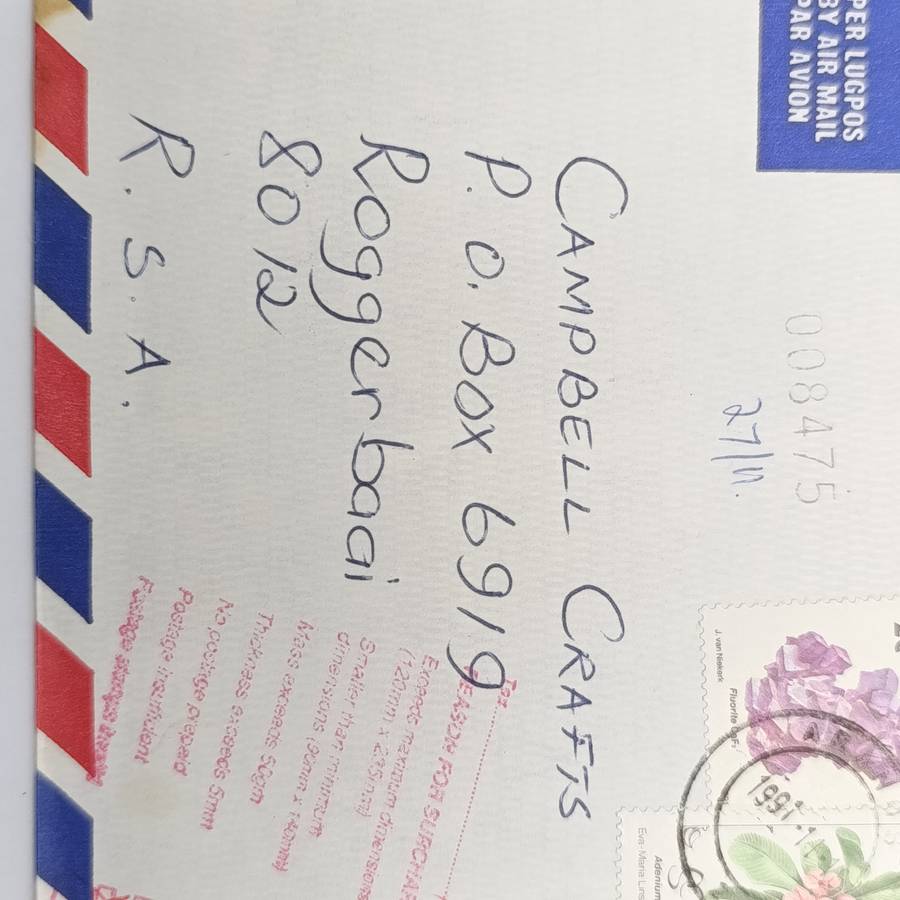 PER LUGPOS
BY AIR MAIL
PAR AVION
008475
27/11.
CAMPBELL CRAFTS
P.O. BOX 6919
Roggerbaai
8012
R.S.A.
J. van Niekerk
Fluorite CaF₂
1991
Eva-Maria Lins
Adenium
REASON FOR SURCHAR
Exceeds maximum dimensions
(120mm x 235mm)
Smaller than minimum
dimensions 90mm x 140mm)
Mass exceeds 50gm
Thickness exceeds 5mm
No postage prepaid
Postage insufficient